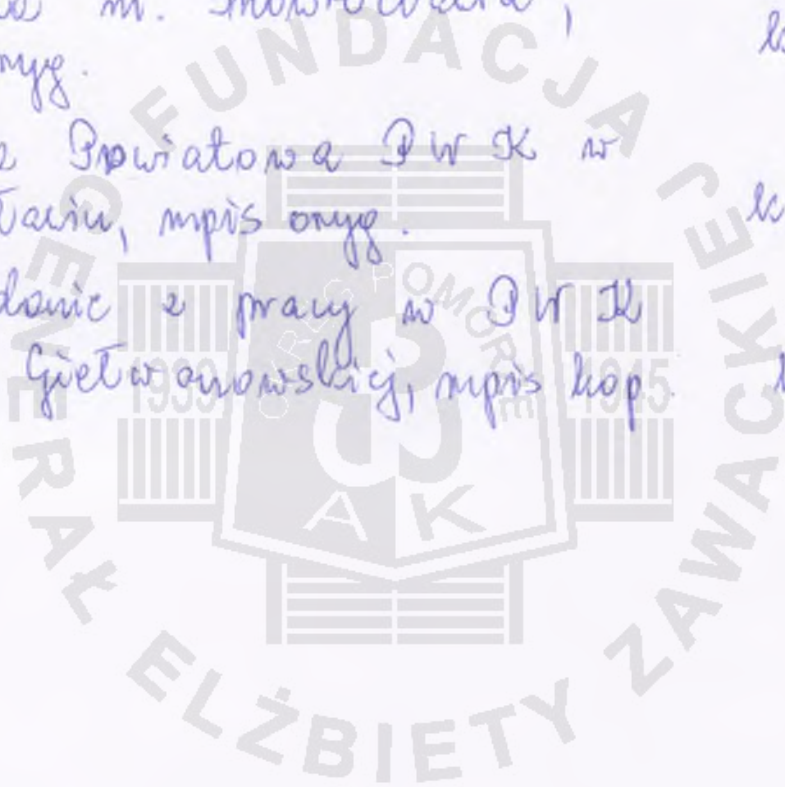 m. Inowrocławia,
oryg.
Powiatowa PWK w
mpis oryg.
z pracy w PWK
Giełwanowskiej, mpis kop.
FUNDACJA GENERAŁ ELŻBIETY ZAWACKIEJ
OKRĘG POMORZE
1939 1945
AK